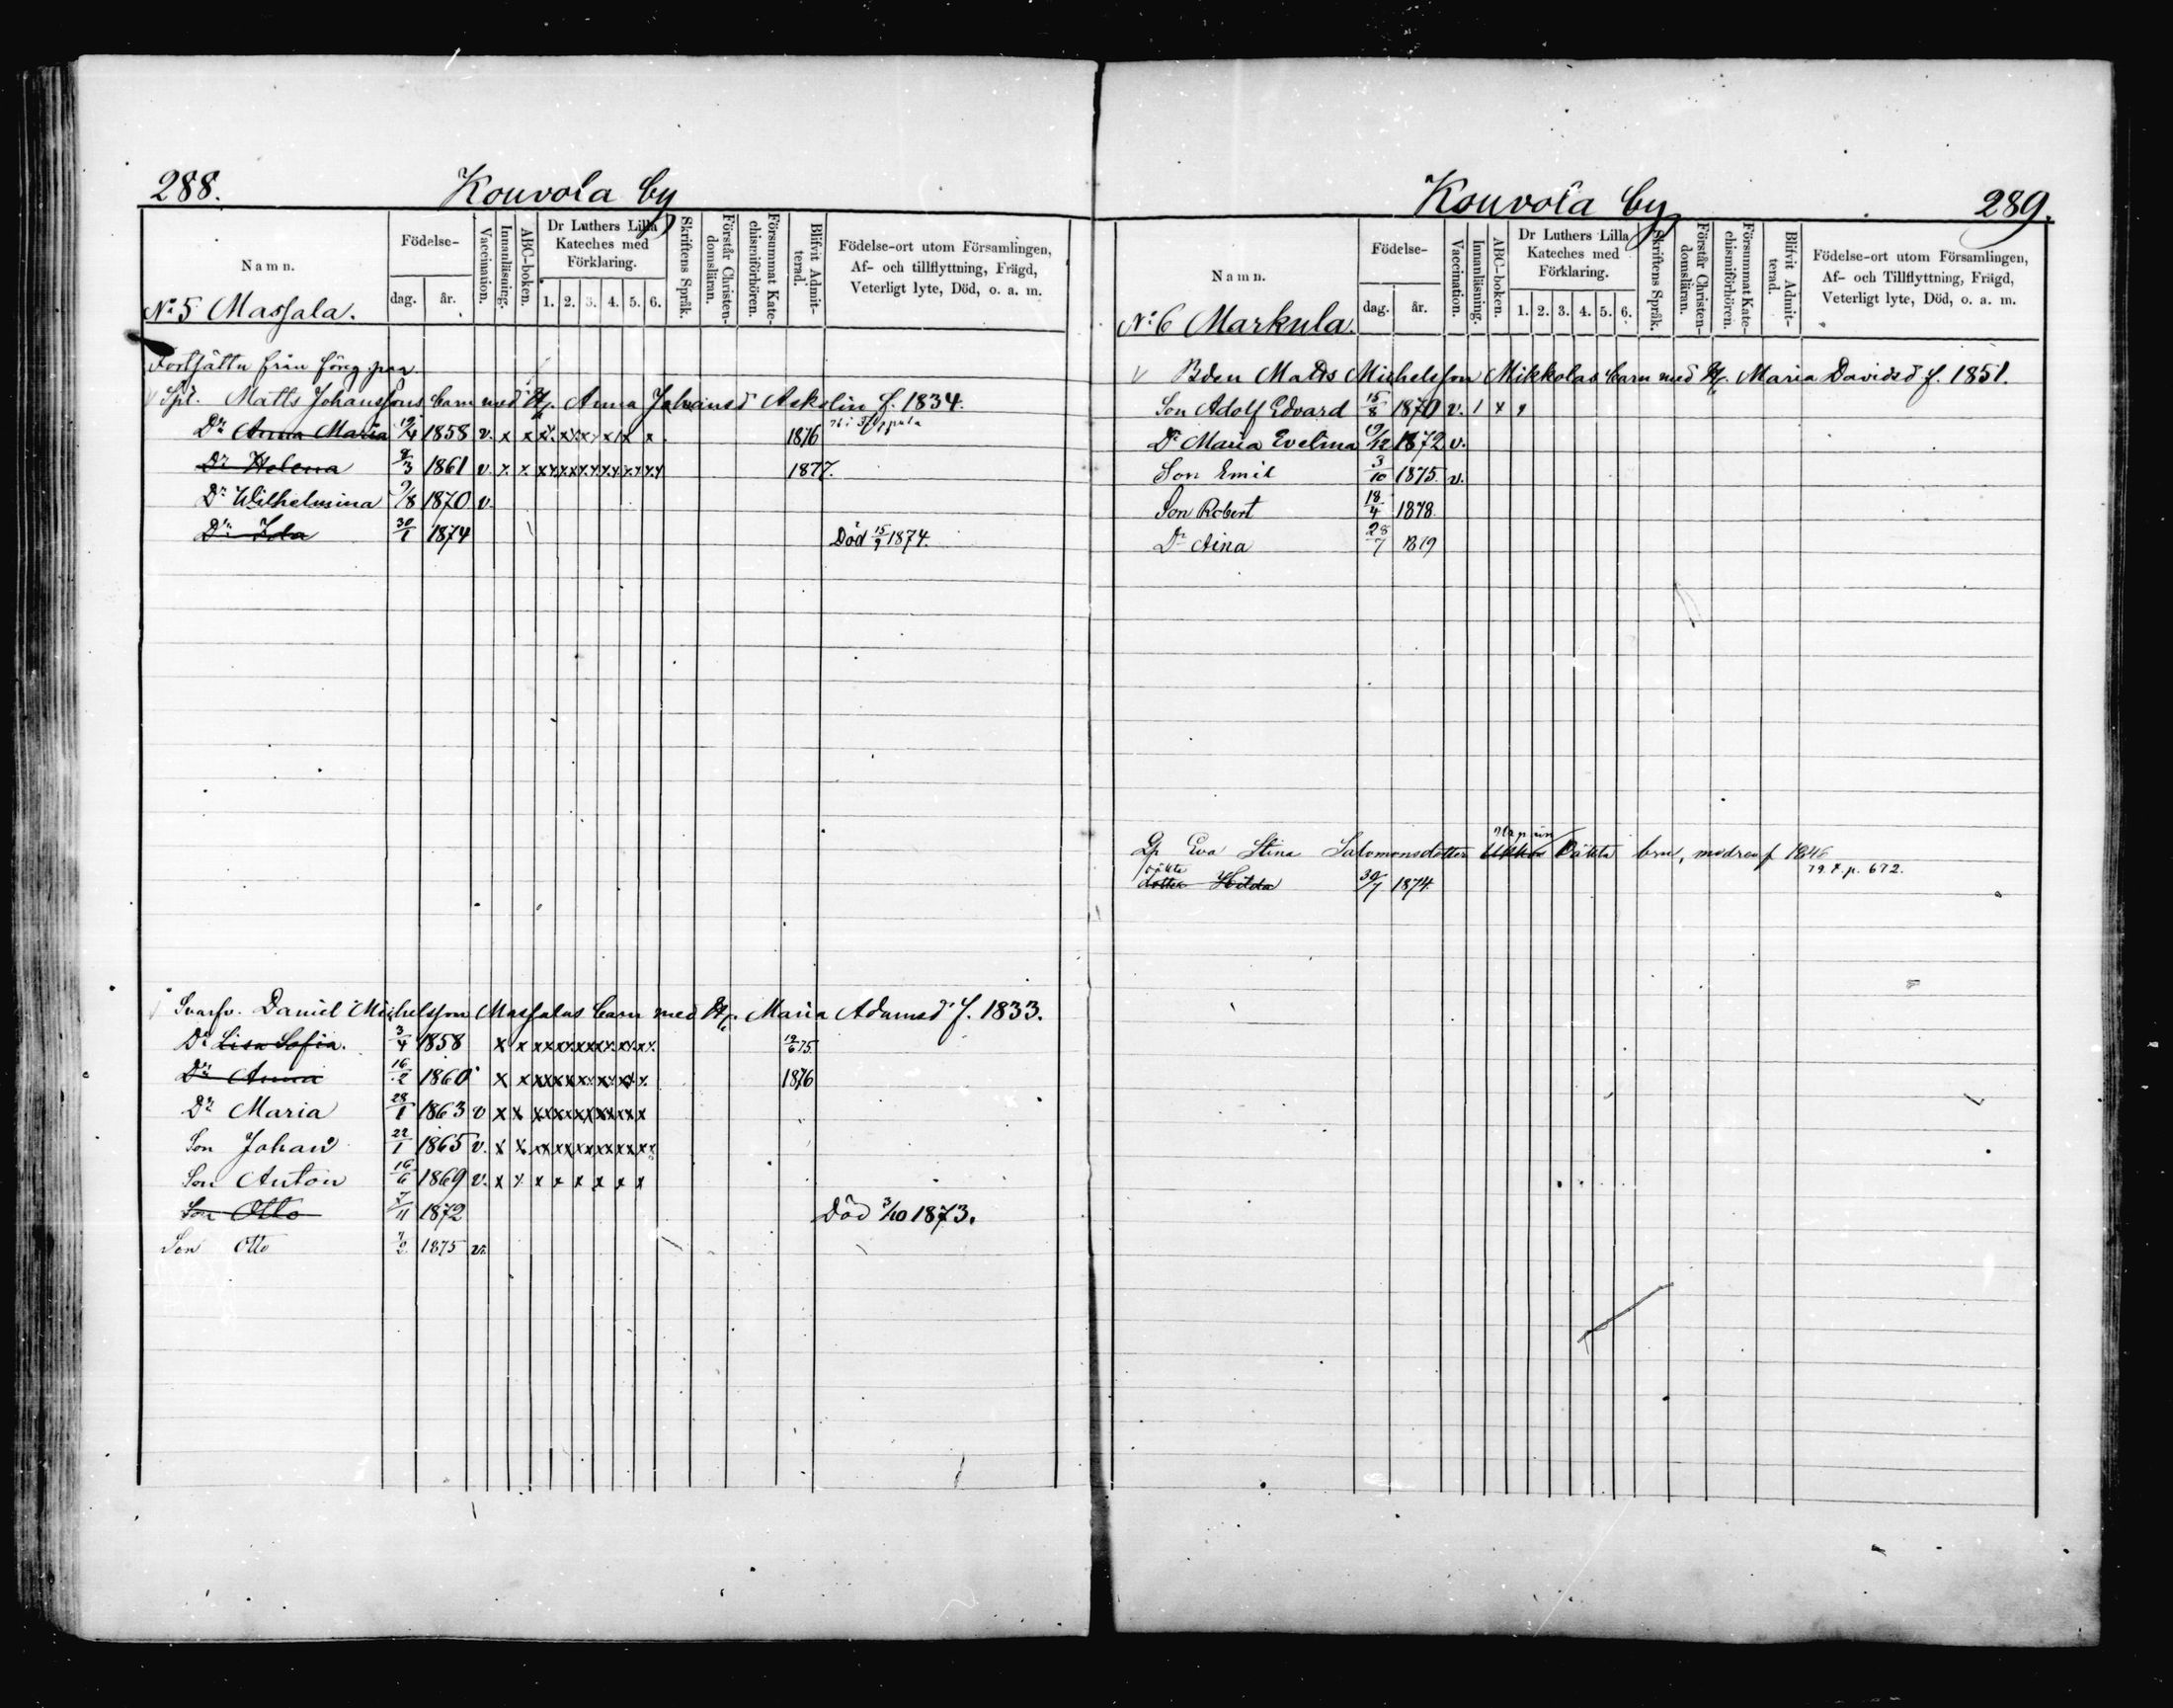 288.
Kouvola by
Namn.
Födelse-
dag.
år.
Vaccination.
Innanläsning.
ABC-boken.
Dr Luthers Lilla
Kateches med
Förklaring.
1. 2. 3. 4. 5. 6.
Skriftens Språk.
Förstår Christen-
domsläran.
Försummat Kate-
chismiförhören.
Blifvit Admit-
terad.
Födelse-ort utom Församlingen,
Af- och tillflyttning, Frägd,
Veterligt lyte, Död, o. a. m.
No 5 Massala.
Fortsättn från föreg pag
Matts Johanssons barn med H. Anna Johansd Askolin f. 1834.
Dr Anna Maria 12/4 1858 v. x x x x x x x x x 1876
Dr Helena 2/3 1861 v. x x x x x x x x x x x x x x 1877.
Dr Wilhelmina 9/8 1870 v.
Dr Ida 30/1 1874 Död 15/9 1874.
Svarfv. Daniel Michelsson Massalas barn med H. Maria Adamsd f. 1833.
Dr Lisa Sofia. 3/4 1858 x x x x x x x x x x x x x x 12/6 75.
Dr Anna 16/2 1860 x x x x x x x x x x x x x 1876
Dr Maria 28/1 1863 v x x x x x x x x x x x x x
Son Johan 22/1 1865 v. x x x x x x x x x x x x x x
Son Anton 16/6 1869 v. x x x x x x x x
Son Otto 7/11 1872 Död 3/10 1873.
Son Otto 1875 v.
Kouvola by
289.
Namn.
Födelse-
dag.
år.
Vaccination.
Innanläsning.
ABC-boken.
Dr Luthers Lilla
Kateches med
Förklaring.
1. 2. 3. 4. 5. 6.
Skriftens Språk.
Förstår Christen-
domsläran.
Försummat Kate-
chismiförhören.
Blifvit Admit-
terad.
Födelse-ort utom Församlingen,
Af- och Tillflyttning, Frägd,
Veterligt lyte, Död, o. a. m.
No 6 Markula.
v Bden Matts Michelsson Mikkolas barn med H. Maria Davidsd f. 1851.
Son Adolf Edvard 15/8 1870 v. 1 x x
Dr Maria Evelina 19/12 1872 v.
Son Emil 3/10 1875. v.
Son Robert 18/4 1878.
Dr Aina 28/7 1879
Eva Stina Salomonsdotter oäkta brn, modren f 1846
79. p. 672.
oäkta
dotter Hilda 30/7 1874